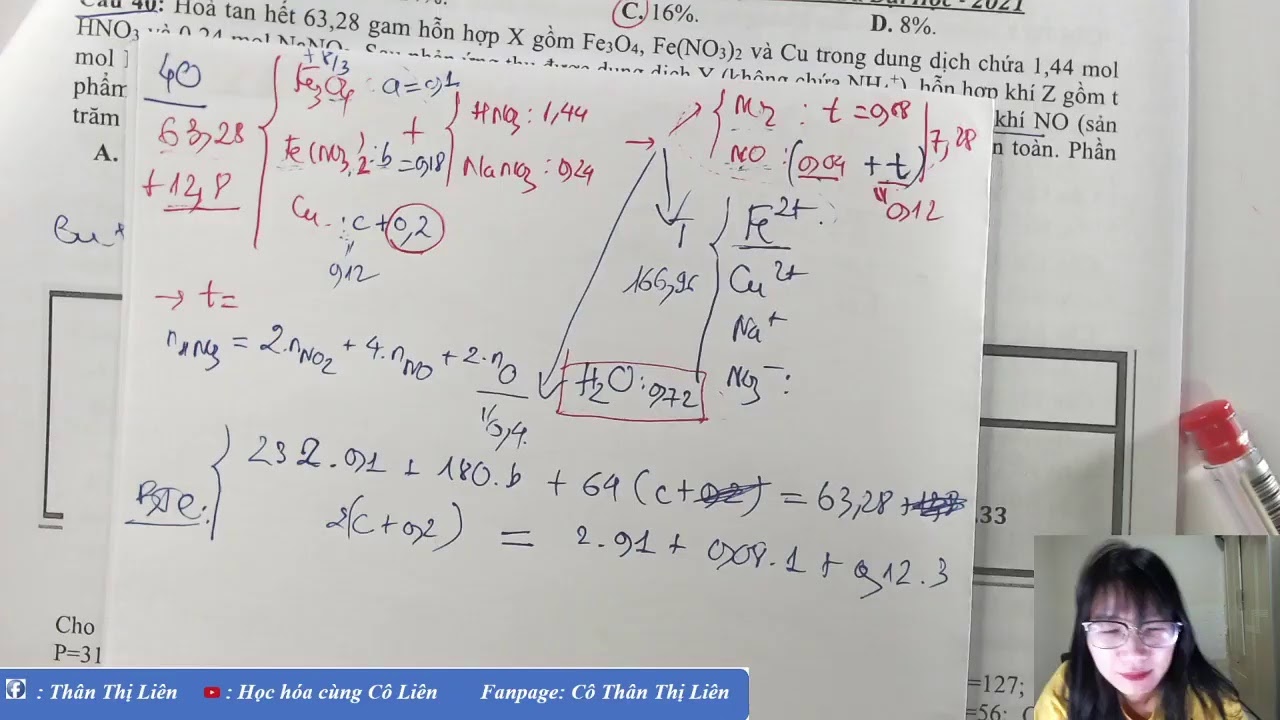 Đại Học - 2021
C. 16%.
D. 8%.
Câu 40: Hoà tan hết 63,28 gam hỗn hợp X gồm Fe3O4, Fe(NO3)2 và Cu trong dung dịch chứa 1,44 mol
HNO3 và 0,24 mol NaNO3. Sau phản ứng thu được dung dịch Y (không chứa NH4+), hỗn hợp khí Z gồm t
mol
phẩm
khí NO (sản
trăm
n toàn. Phần
A.
40
63,28
+12,8
+8/3
Fe3O4 : a=0,1
Fe(NO3)2 : b=0,18
Cu : c+0,2
0,12
+
HNO3 : 1,44
NaNO3 : 0,24
→
NO2 : t=0,08
NO : (0,04 + t)
0,12
7,28
166,96
Fe2+ :
Cu2+
Na+
NO3- :
H2O : 0,72
→ t=
nHNO3 = 2.nNO2 + 4.nNO + 2.nO
0,4
232.0,1 + 180.b + 64(c+0,2) = 63,28
BTe:
2(c+0,2) = 2.0,1 + 0,08.1 + 0,12.3
.33
Cho
P=31
=127;
=56;
: Thân Thị Liên
: Học hóa cùng Cô Liên
Fanpage: Cô Thân Thị Liên